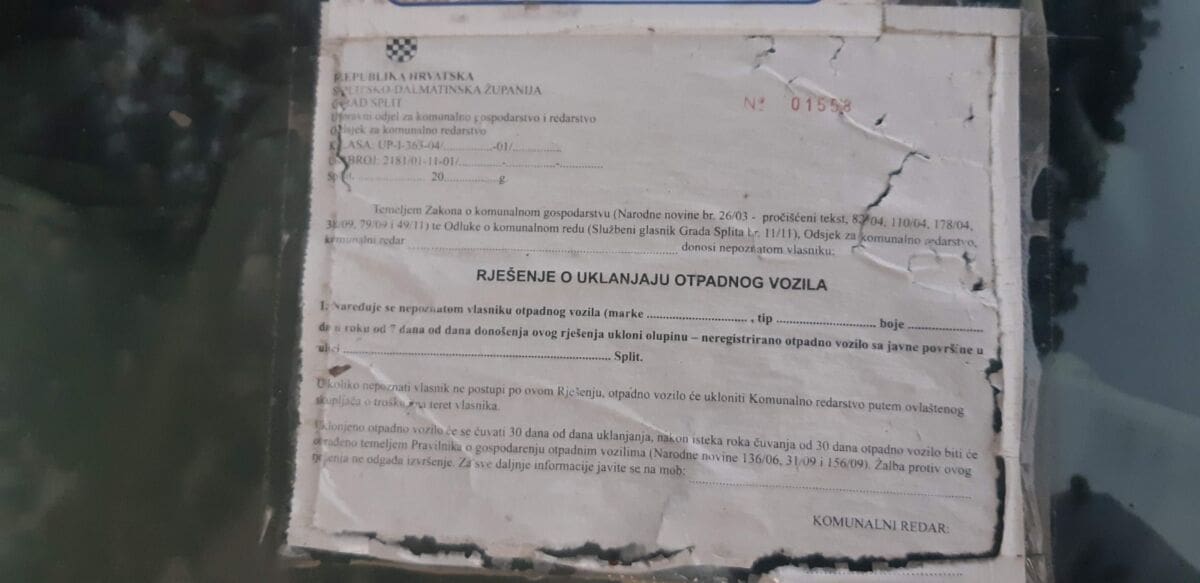 REPUBLIKA HRVATSKA
SPLITSKO-DALMATINSKA ŽUPANIJA
GRAD SPLIT
Upravni odjel za komunalno gospodarstvo i redarstvo
Odsjek za komunalno redarstvo
KLASA: UP-I-363-04/............-01/............
URBROJ: 2181/01-11-01/............-............-............
Split, ........................ 20............g.
Nº 01558
Temeljem Zakona o komunalnom gospodarstvu (Narodne novine br. 26/03 - pročišćeni tekst, 82/04, 110/04, 178/04,
38/09, 79/09 i 49/11) te Odluke o komunalnom redu (Službeni glasnik Grada Splita br. 11/11), Odsjek za komunalno redarstvo,
komunalni redar ........................ donosi nepoznatom vlasniku:
RJEŠENJE O UKLANJAJU OTPADNOG VOZILA
1. Naređuje se nepoznatom vlasniku otpadnog vozila (marke ........................ , tip ........................ boje ........................
da u roku od 7 dana od dana donošenja ovog rješenja ukloni olupinu – neregistrirano otpadno vozilo sa javne površine u
ulici ........................ Split.
Ukoliko nepoznati vlasnik ne postupi po ovom Rješenju, otpadno vozilo će ukloniti Komunalno redarstvo putem ovlaštenog
skupljača o trošku na teret vlasnika.
Uklonjeno otpadno vozilo će se čuvati 30 dana od dana uklanjanja, nakon isteka roka čuvanja od 30 dana otpadno vozilo biti će
obrađeno temeljem Pravilnika o gospodarenju otpadnim vozilima (Narodne novine 136/06, 31/09 i 156/09). Žalba protiv ovog
rješenja ne odgađa izvršenje. Za sve daljnje informacije javite se na mob: ........................
KOMUNALNI REDAR: